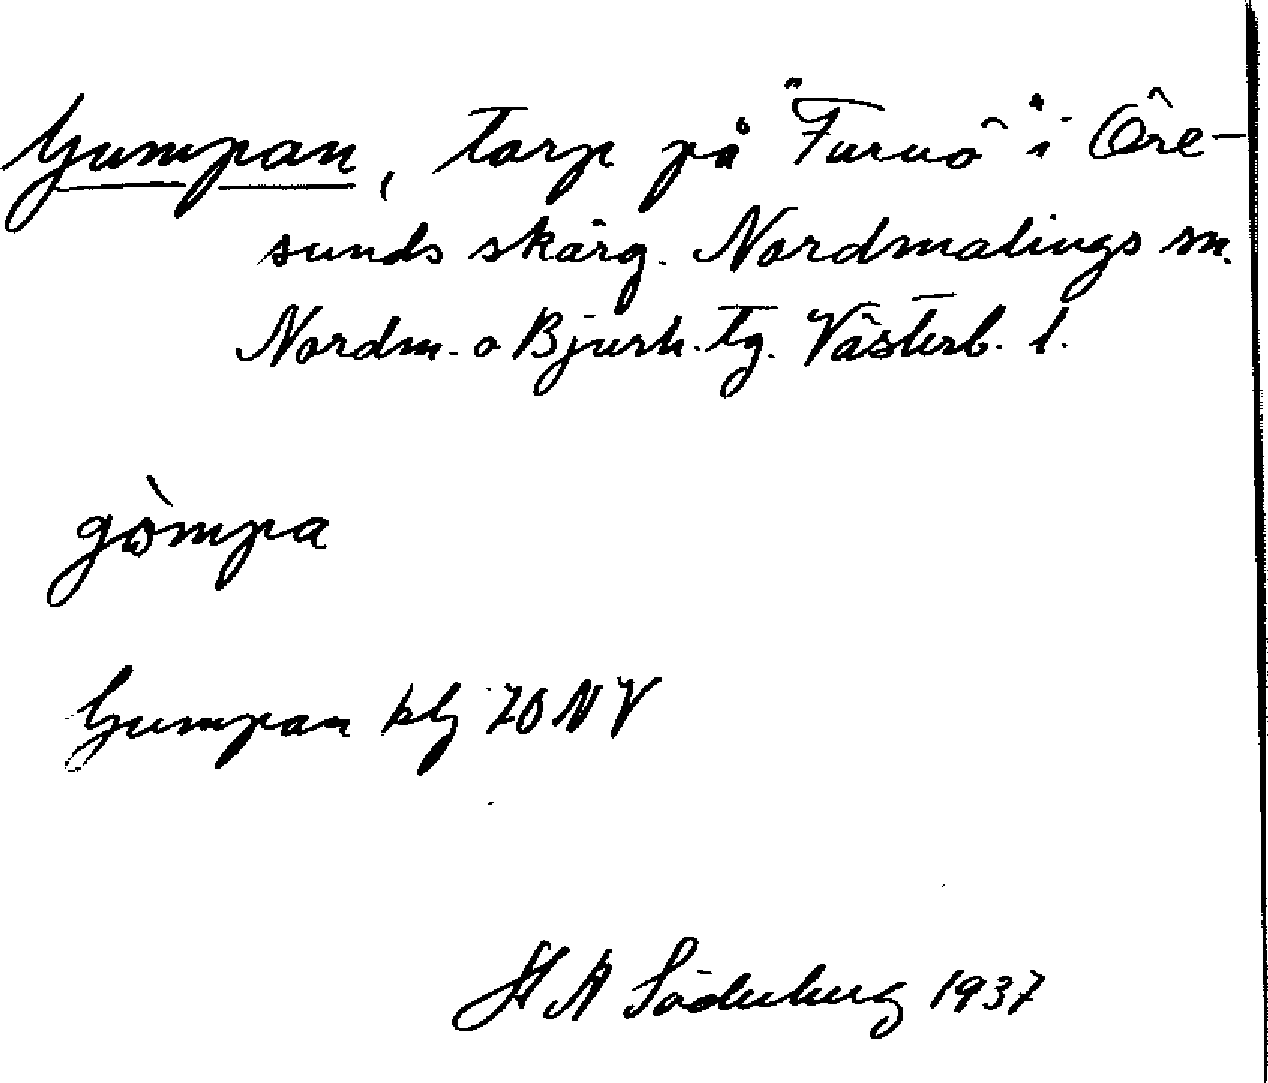 Gumpan, torp på "Furuö" i Öre-
sunds skärg. Nordmalings sn.
Nordm. o Bjurh. tg. Västerb. l.
gòmpa
Gumpan kbj 70 NV
H A Söderberg 1937